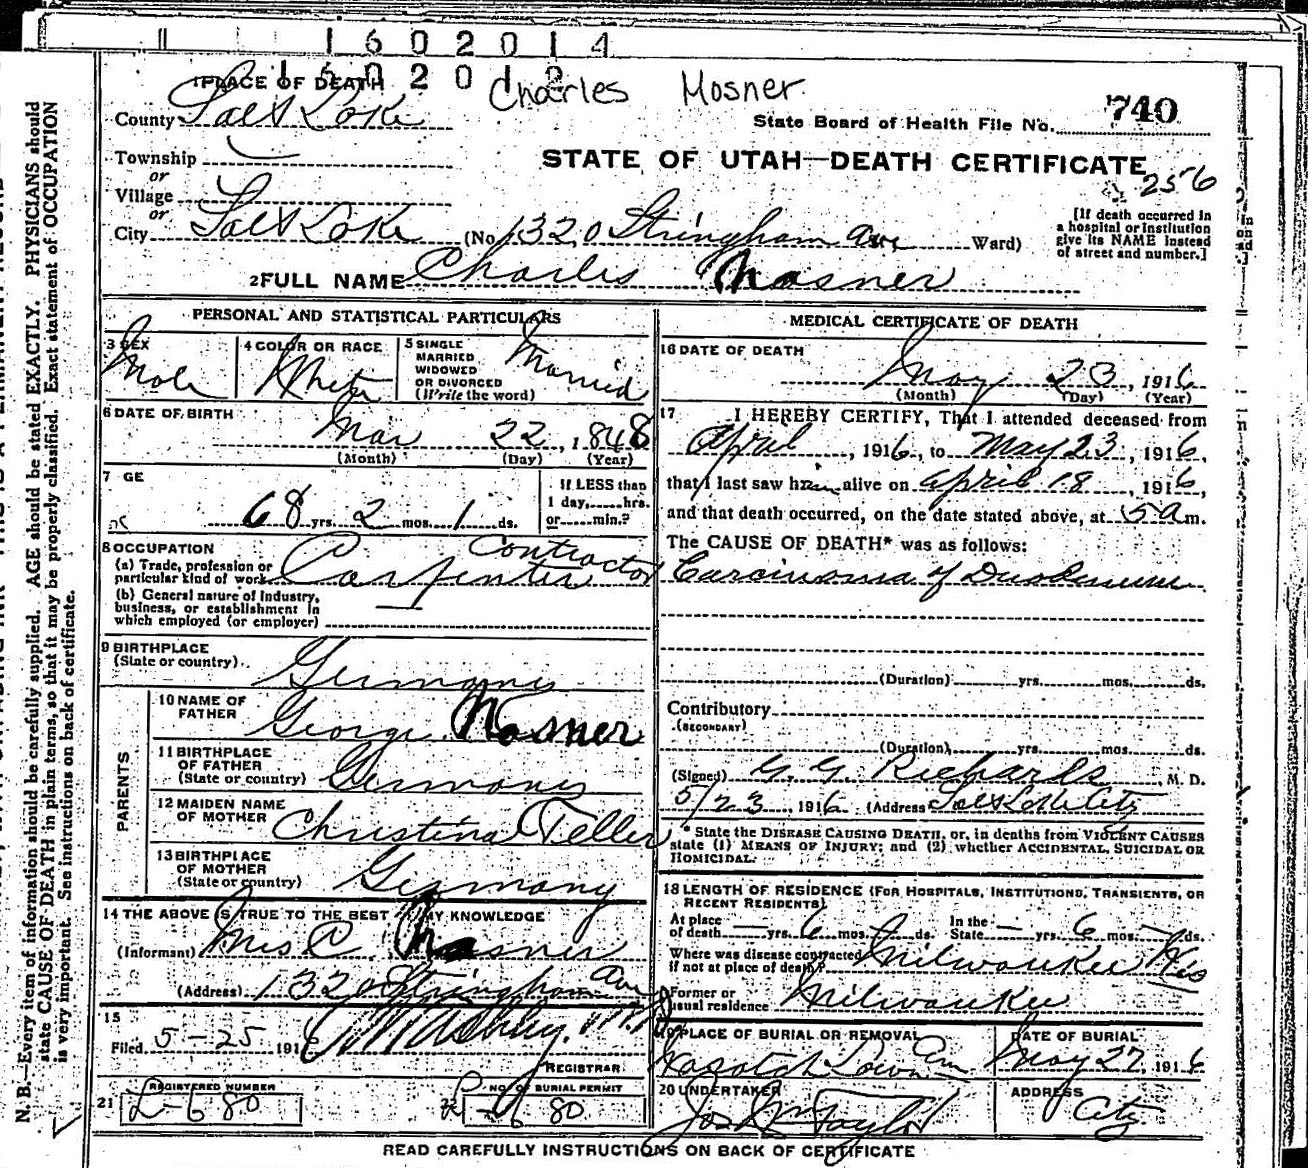 1602014
1602012
Charles Mosner
1 PLACE OF DEATH
740
County Salt Lake
State Board of Health File No.
Township
STATE OF UTAH—DEATH CERTIFICATE
256
or
Village
or
City Salt Lake (No 1320 Stringham Ave Ward)
[If death occurred in
a hospital or institution
give its NAME instead
of street and number.]
2 FULL NAME Charles Mosner
PERSONAL AND STATISTICAL PARTICULARS
3 SEX
Male
4 COLOR OR RACE
White
5 SINGLE
MARRIED
WIDOWED
OR DIVORCED
(Write the word)
Married
6 DATE OF BIRTH
Mar 22, 1848
(Month) (Day) (Year)
7 GE
68 yrs. 2 mos. 1 ds.
If LESS than
1 day, hrs.
or min.?
8 OCCUPATION
(a) Trade, profession or
particular kind of work
Contractor
Carpenter
(b) General nature of Industry,
business, or establishment in
which employed (or employer)
9 BIRTHPLACE
(State or country)
Germany
PARENTS
10 NAME OF
FATHER
George Mosner
11 BIRTHPLACE
OF FATHER
(State or country)
Germany
12 MAIDEN NAME
OF MOTHER
Christina Teller
13 BIRTHPLACE
OF MOTHER
(State or country)
Germany
14 THE ABOVE IS TRUE TO THE BEST MY KNOWLEDGE
(Informant) Mrs C. Mosner
(Address) 1320 Stringham Ave
15
Filed 5-25 191
REGISTRAR
REGISTERED NUMBER
21 L-680
NO. OF BURIAL PERMIT
680
MEDICAL CERTIFICATE OF DEATH
16 DATE OF DEATH
May 23, 1916
(Month) (Day) (Year)
17 I HEREBY CERTIFY, That I attended deceased from
April, 1916, to May 23, 1916,
that I last saw him alive on April 18, 1916,
and that death occurred, on the date stated above, at 5 a m.
The CAUSE OF DEATH* was as follows:
Carcinoma of Duodenum
(Duration) yrs. mos. ds.
Contributory
(SECONDARY)
(Duration) yrs. mos. ds.
(Signed) G. G. Richards, M. D.
5/23, 1916 (Address Salt Lake City
* State the DISEASE CAUSING DEATH, or, in deaths from VIOLENT CAUSES
state (1) MEANS OF INJURY; and (2) whether ACCIDENTAL, SUICIDAL OR
HOMICIDAL.
18 LENGTH OF RESIDENCE (FOR HOSPITALS, INSTITUTIONS, TRANSIENTS, OR
RECENT RESIDENTS)
At place
of death — yrs. 6 mos. ds.
In the
State — yrs. 6 mos. ds.
Where was disease contracted
if not at place of death?
Milwaukee Wis
Former or
usual residence Milwaukee
19 PLACE OF BURIAL OR REMOVAL
Wasatch Lawn Cem
DATE OF BURIAL
May 27, 1916
20 UNDERTAKER
Jos Wm Taylor
ADDRESS
City
READ CAREFULLY INSTRUCTIONS ON BACK OF CERTIFICATE
N. B.—Every item of information should be carefully supplied. AGE should be stated EXACTLY. PHYSICIANS should
state CAUSE OF DEATH in plain terms, so that it may be properly classified. Exact statement of OCCUPATION
is very important. See instructions on back of certificate.